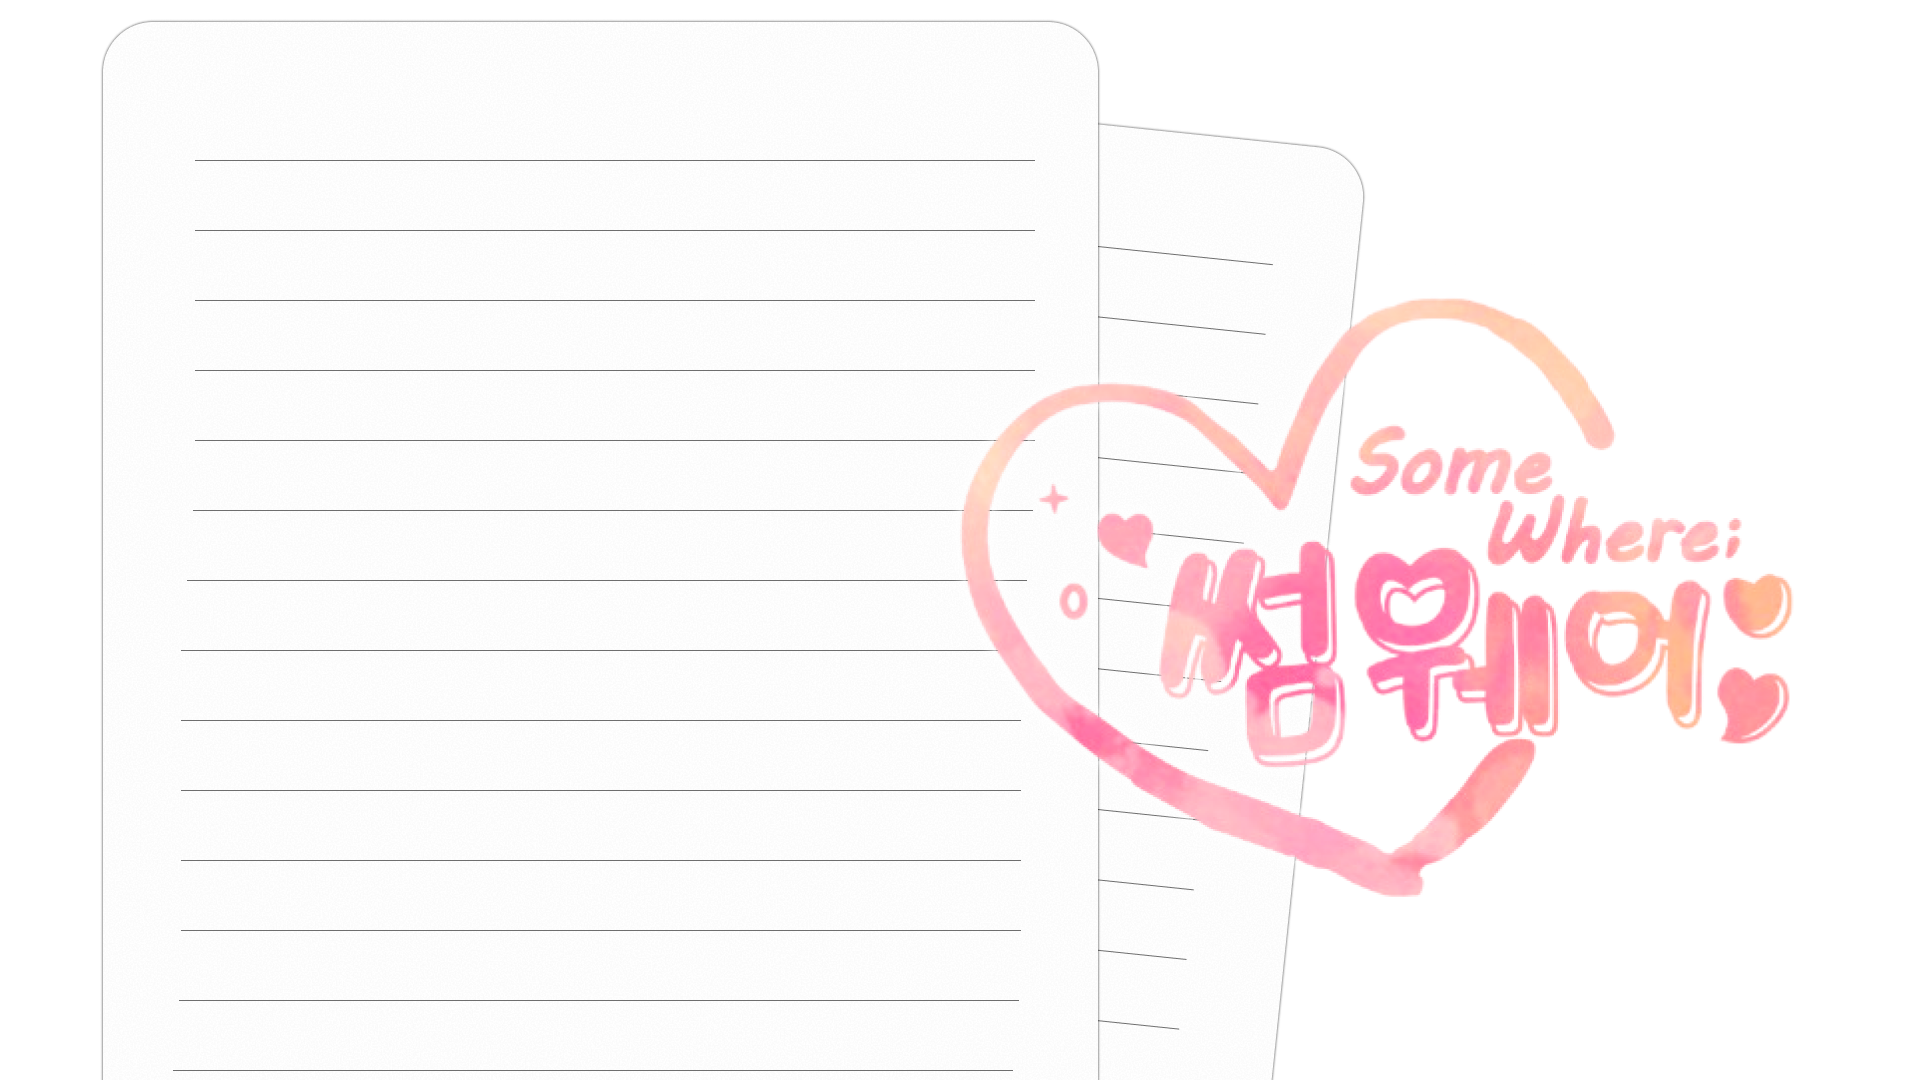 Some
Where;
썸웨어